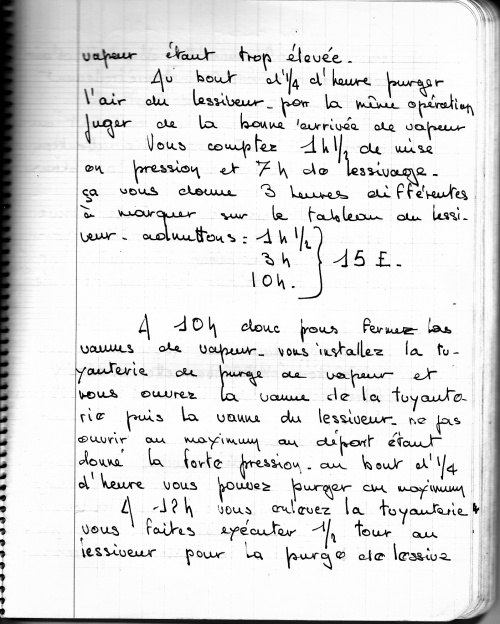 vapeur étant trop élevée.
Au bout d'1/4 d'heure purger
l'air du lessiveur. par la même opération
juger de la bonne arrivée de vapeur
Vous comptez 1h1/2 de mise
en pression et 7h de lessivage.
ça vous donne 3 heures différentes
à marquer sur le tableau du lessi-
veur. admettons : 1h1/2
3h } 15 E.
10h.
A 10h donc vous fermez les
vannes de vapeur. vous installez la tu-
yauterie de purge de vapeur et
vous ouvrez la vanne de la tuyaute-
rie puis la vanne du lessiveur. ne pas
ouvrir au maximum au départ étant
donné la forte pression. au bout d'1/4
d'heure vous pouvez purger au maximum
A 12h vous enlevez la tuyauterie
vous faites exécuter 1/2 tour au
lessiveur pour la purge de lessive